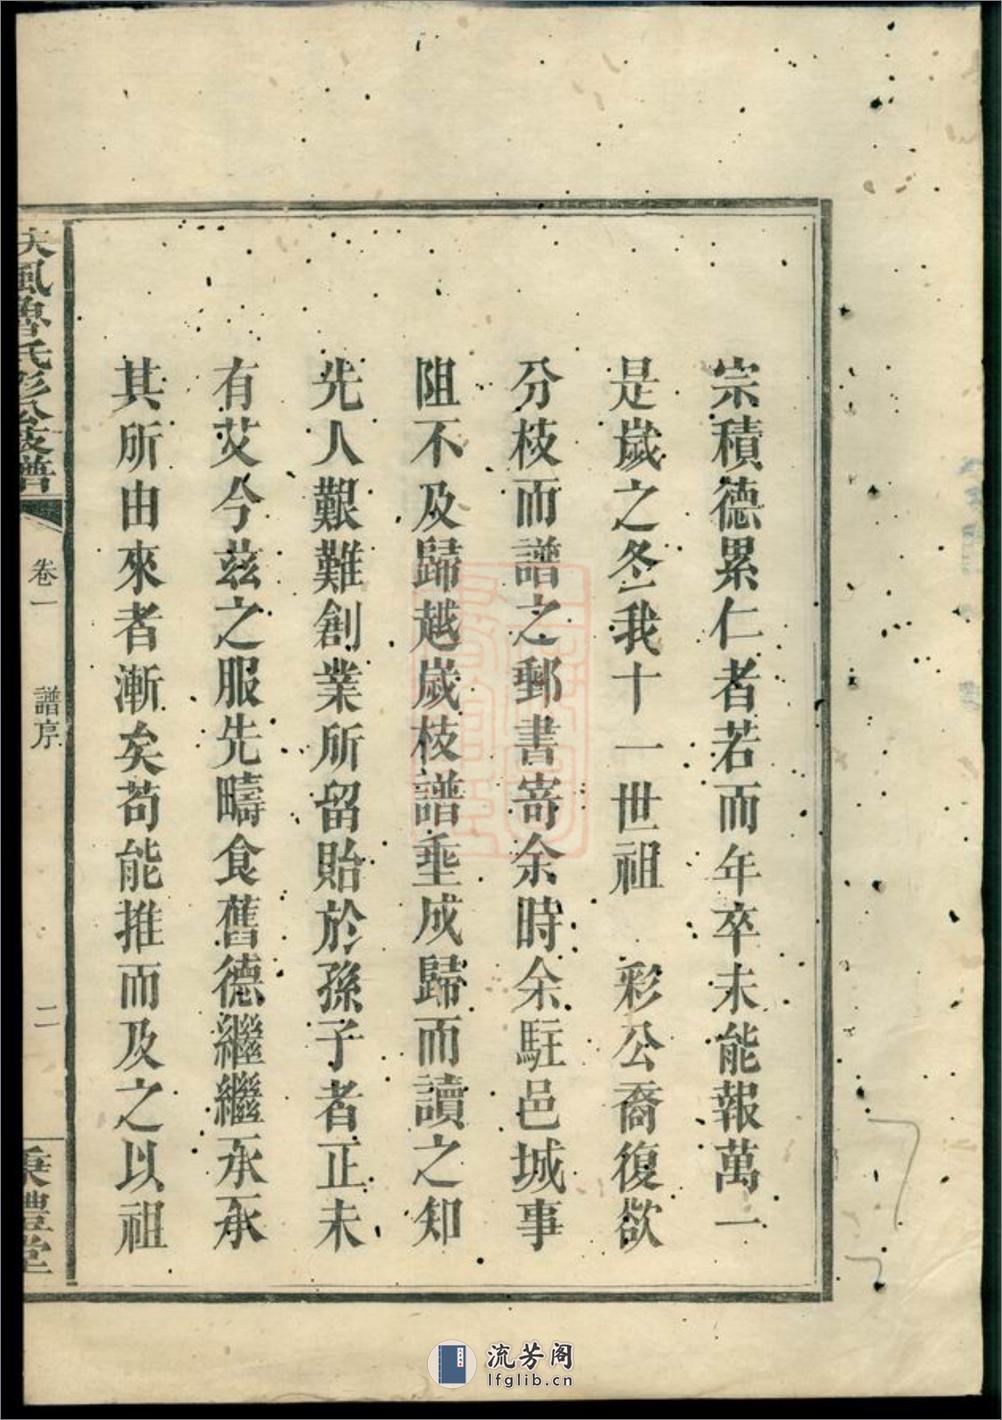 宗積德累仁者若而年卒未能報萬一
是歲之冬我十一世祖　彩公裔復欲
分枝而譜之郵書寄余時余駐邑城事
阻不及歸越歲枝譜埀成歸而讀之知
先人艱難創業所留貽於孫子者正未
有艾今兹之服先疇食舊德繼繼承承
其所由來者漸矣苟能推而及之以祖
扶風魯氏彩公枝譜
卷一
譜序
二
秉禮堂
流芳阁
lfglib.cn